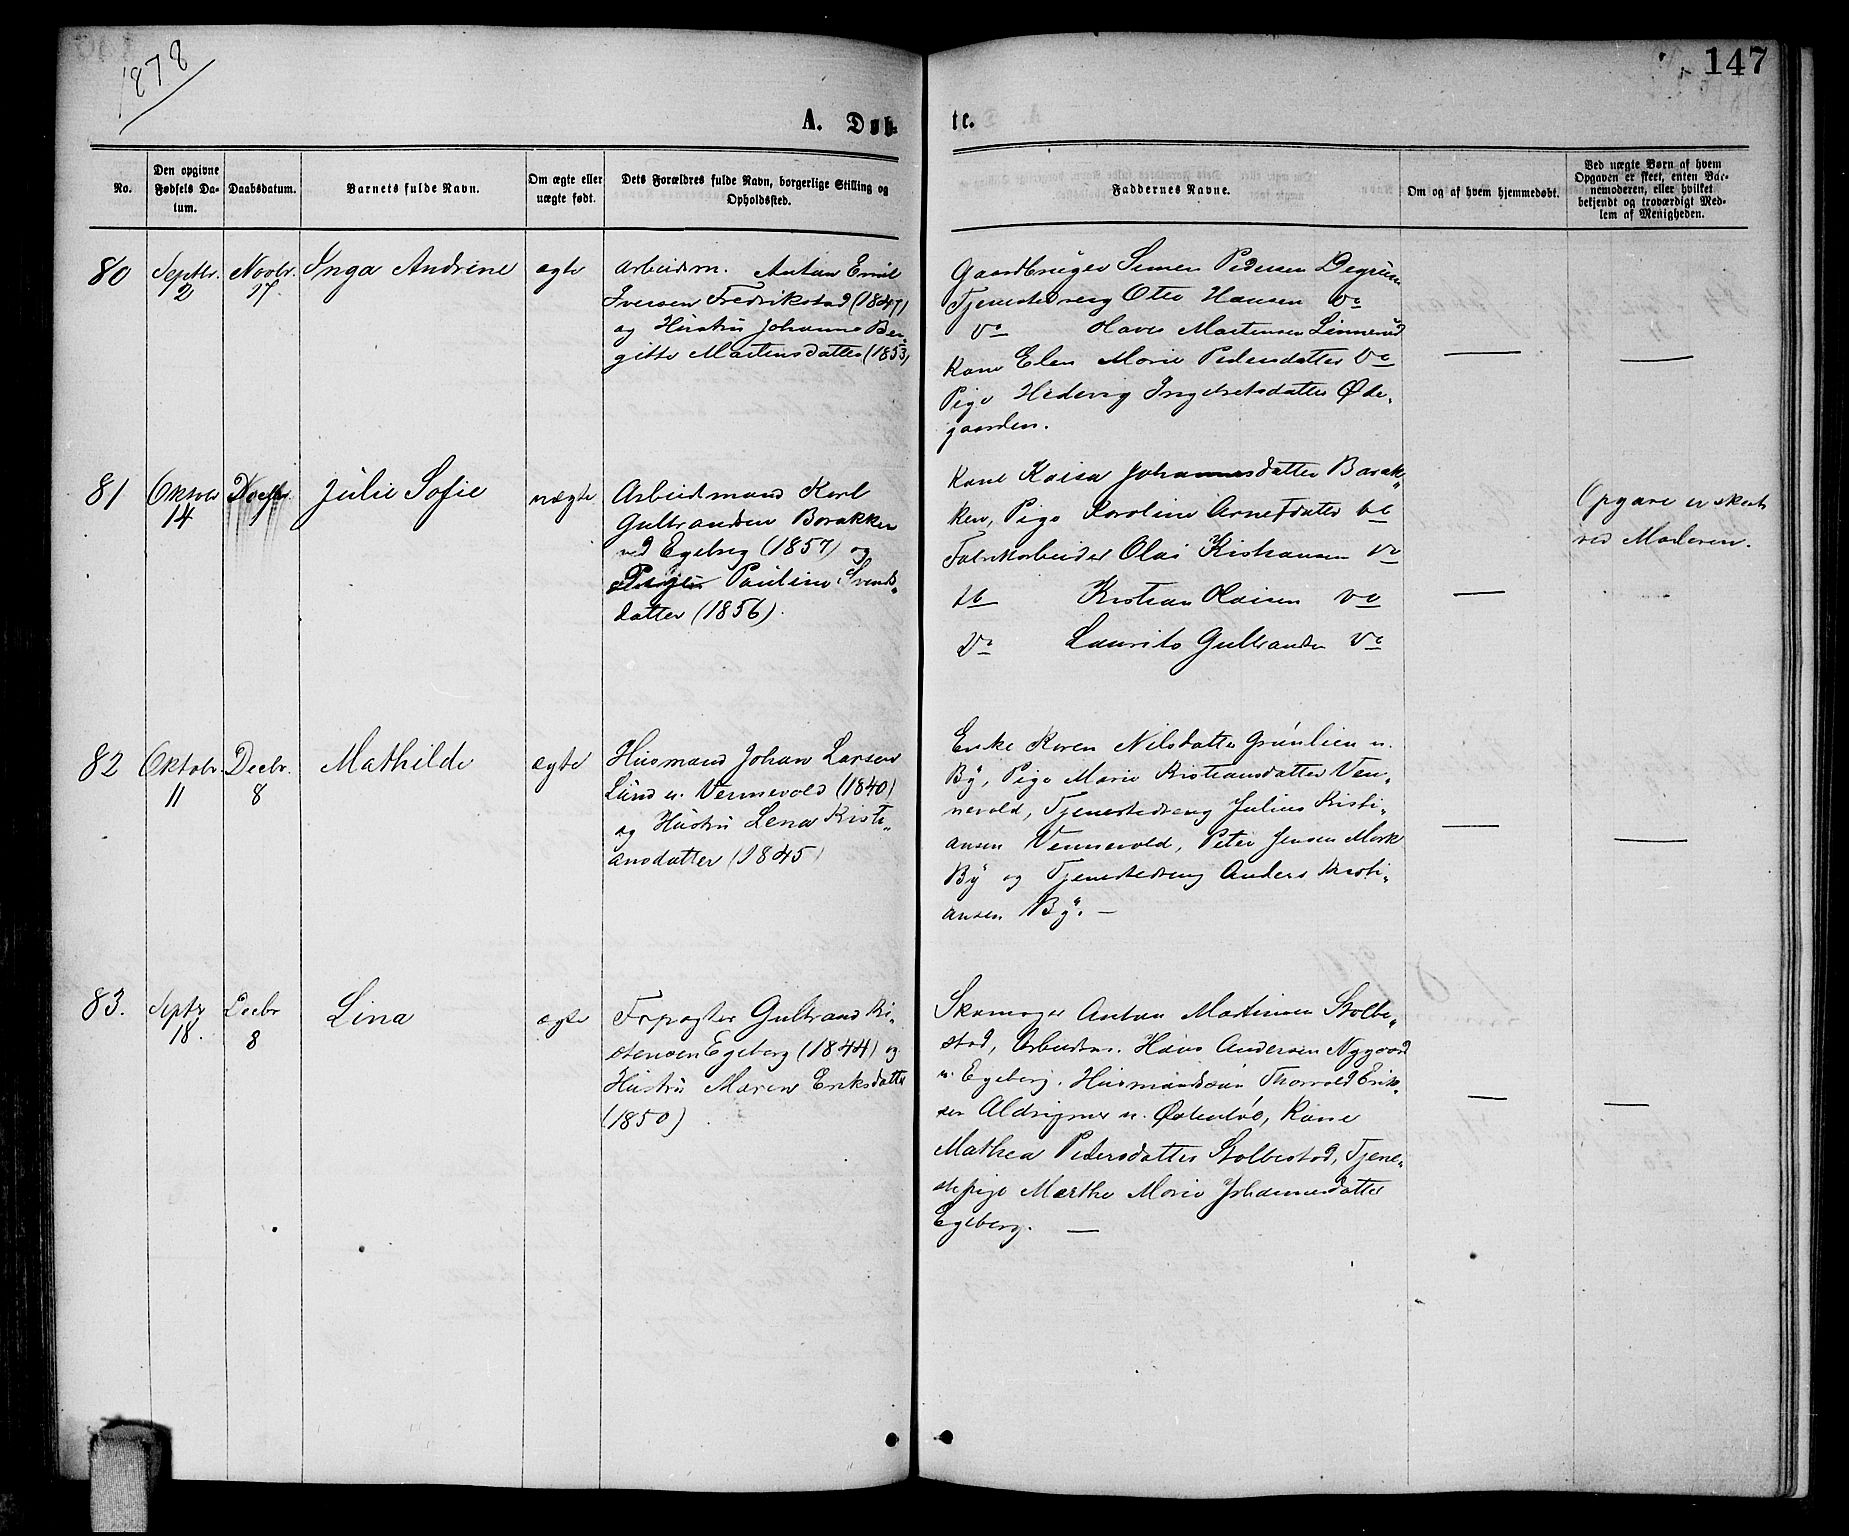 1878
147
A. Døb-
te.
No.
Den opgivne Fødsels Da- tum.
Daabsdatum.
Barnets fulde Navn.
Om ægte eller uægte født.
Dets Forældres fulde Navn, borgerlige Stilling og Opholdssted.
Faddernes Navne.
Om og af hvem hjemmedøbt.
Ved uægte Børn af hvem Opgaven er skeet, enten Bar- nemoderen, eller hvilket bekjendt og troværdigt Med- lem af Menigheden.
80
Septbr. 2
Novbr. 17.
Inga Andrine
ægte
Arbeidsm. Anton Emil
Iversen Fredrikstad (1847)
og Hustru Johanne Ber-
gitte Martinsdatter (1853)
Gaardbruger Simen Pedersen Degrum
Tjenestedreng Otto Hansen Do
Do Hans Martinsen Linnerud
Kone Elen Marie Pedersdatter Do
Pige Hedevig Ingebretsdatter Øde-
gaarden.
81
Oktobr 14
Julie Sofie
uægte
Arbeidsmand Karl
Gulbrandsen Barakken
ved Egeberg (1857) og
Pige Pauline Svends-
datter (1856).
Kone Kaisa Johannesdatter Barak-
ken, Pige Karoline Arnesdatter Do
Fabrikarbeider Olai Kristiansen Do
Do Kristian Olaisen Do
Do Laurits Gulbrandsen Do
Opgave er skeet
ved Moderen.
82
Oktobr. 11
Decbr. 8
Mathilde
ægte
Husmand Johan Larsen
Lund u. Vennevold (1840)
og Hustru Lena Kristi-
ansdatter (1845)
Enke Karen Nilsdatter Grønlien u.
By, Pige Marie Kristiansdatter Ven-
nevold, Tjenestedreng Julius Kristi-
ansen Vennevold, Peter Jensen Mork
By og Tjenestedreng Anders Kristi-
ansen By. —
83.
Septr 18.
Decbr 8
Lina
ægte
Forpagter Gulbrand Kri-
stensen Egeberg (1844) og
Hustru Maren Eriksdatter
(1850)
Skomager Anton Martinsen Stolbe-
stad, Arbeidsm. Hans Andersen Nygaard
u. Egeberg, Husmandssøn Thorvald Erik-
sen u. Kone
Mathea Pedersdatter Stolbestad, Tjene-
stepige Marthe Marie Johannesdatter
Egeberg. —